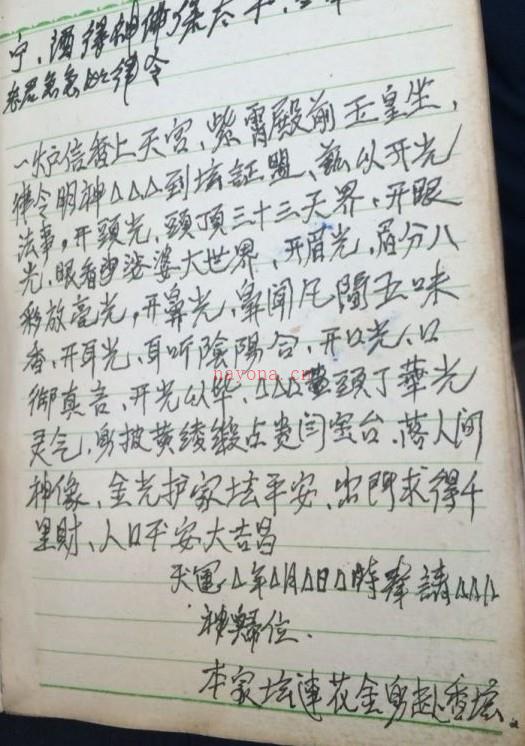 宁，酒得神佛保太平，
急急如律令
一炉信香上天宫、紫霄殿前玉皇坐，
律令明神△△△到坛証盟、蓺从开光
法事，开頭光、頭頂三十三天界、开眼
光、眼看娑婆大世界、开眉光、眉分八
彩放亮光，开鼻光、鼻闻凡間五味
香、开耳光、耳听陰陽合、开口光、口
御真言、开光以毕、△△△頭丁華光
灵气、身披黄绫缎占贵闫宝台、落人间
神像、金光护家坛平安、出門求得千
里財、人口平安大吉昌
天運△年△月△日△時奉請△△△
神歸位.
本家坛连花金身赴香坛。
nayona.cn